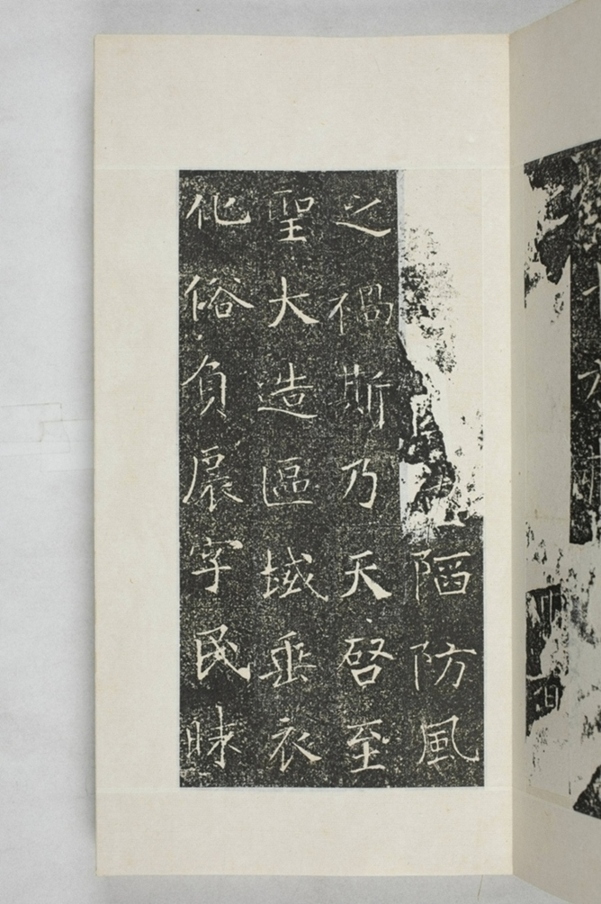 陋防風
之禍斯乃天啓至
聖大造區域垂衣
化俗負扆字民昧